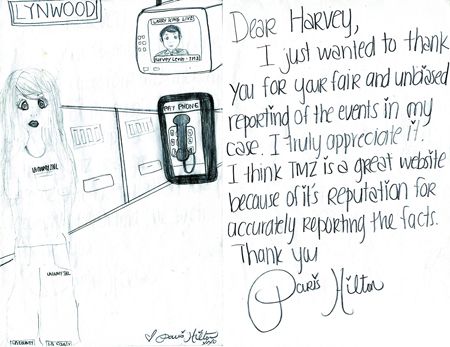 LYNWOOD
LARRY KING LIVE
HARVEY LEVIN - TMZ
PAY PHONE
LA COUNTY JAIL
♡ Paris Hilton
xoxo
Dear Harvey,
I just wanted to thank
you for your fair and unbiased
reporting of the events in my
case. I truly appreciate it.
I think TMZ is a great website
because of it's reputation for
accurately reporting the facts.
Thank you
Paris Hilton